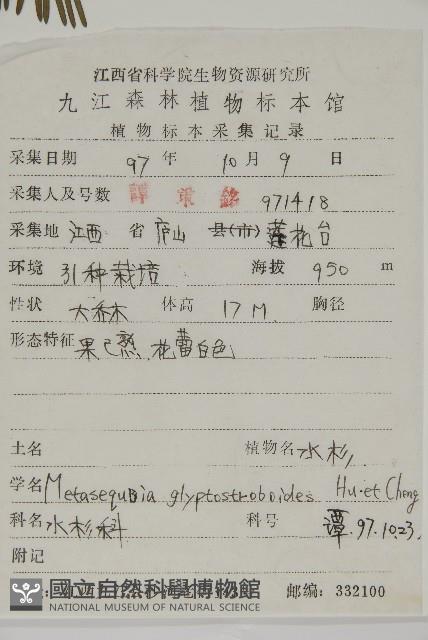 江西省科学院生物资源研究所
九江森林植物标本馆
植物标本采集记录
采集日期 97 年 10 月 9 日
采集人及号数 譚策銘 971418
采集地 江西 省 庐山 县(市) 莲花台
环境 引种栽培 海拔 950 m
性状 大乔木 体高 17 M 胸径
形态特征 果已熟 花蕾白色
土名 植物名 水杉
学名 Metasequoia glyptostroboides Hu. et Cheng
科名 水杉科 科号 谭. 97.10.23.
附记
國立自然科學博物館
NATIONAL MUSEUM OF NATURAL SCIENCE
邮编: 332100